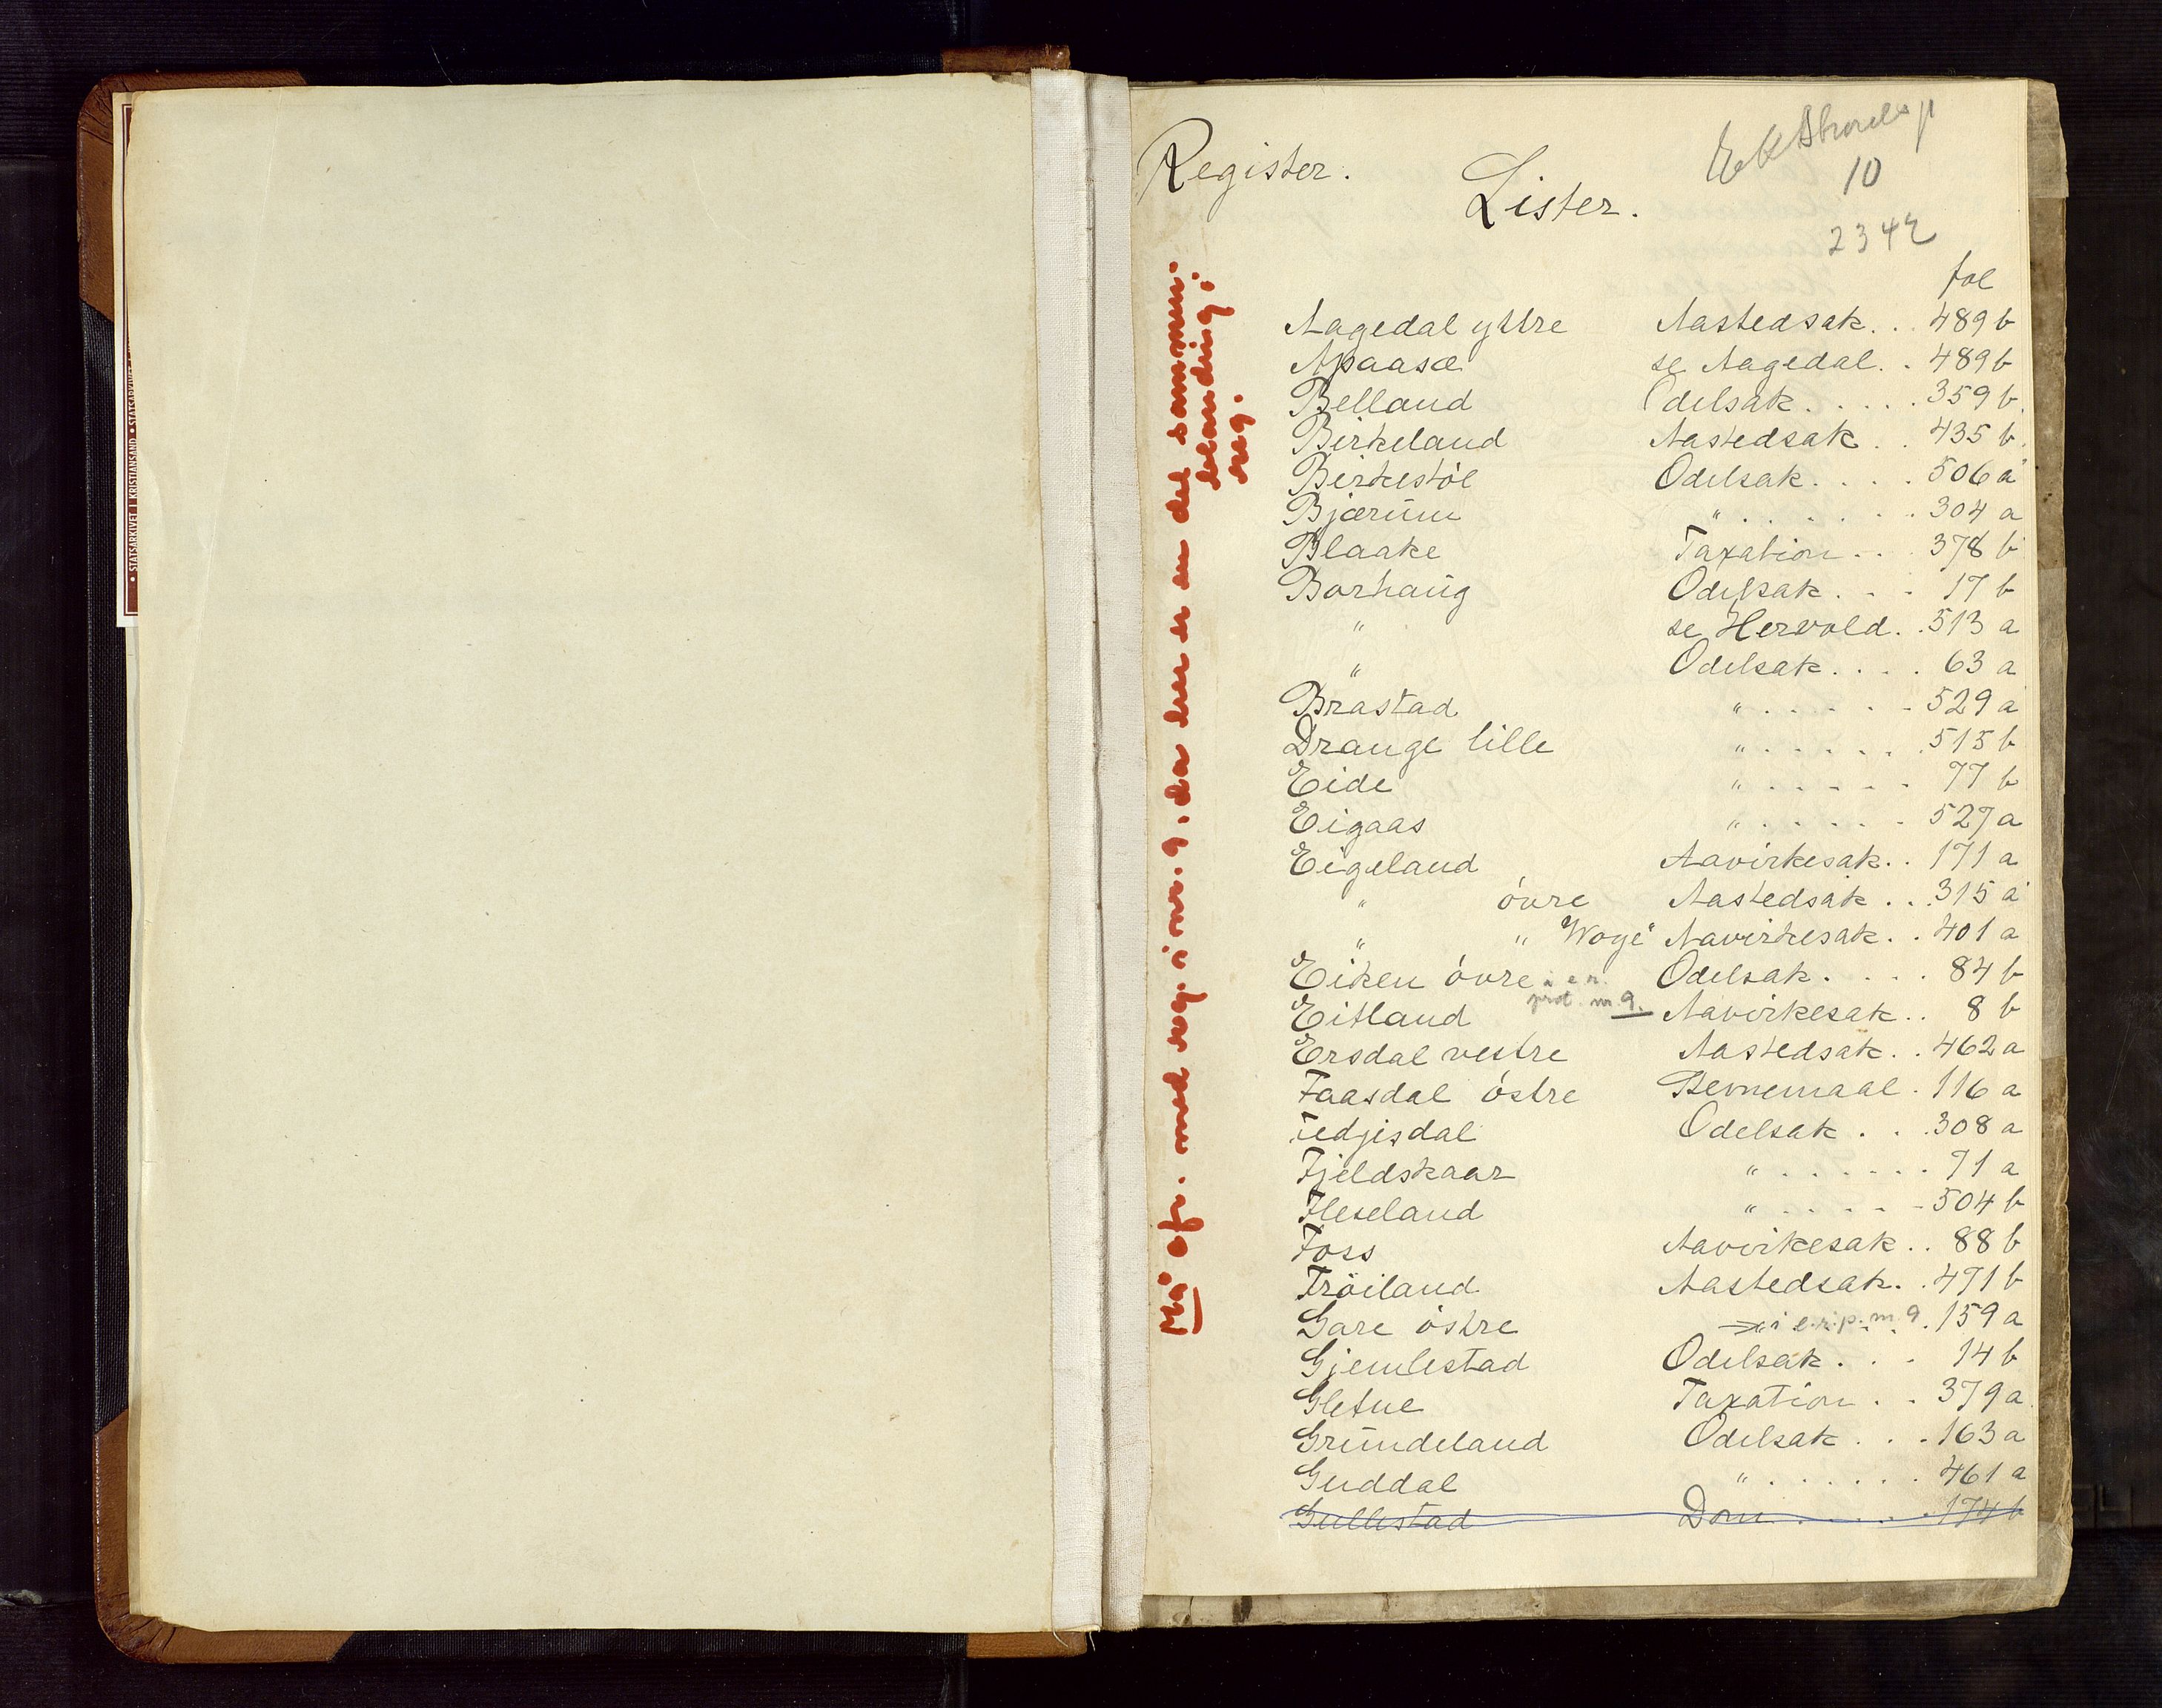 Register.
Lister.
10
2342
fol
Aagedal yttre Aastedsak. . 489 b
Apaasæ se Aagedal. . 489 b
Belland Odelsak. . . . . 359 b.
Birkeland Aastedsak . . 435 b.
Birkestöl Odelsak. . . . . 506 a
Bjærum " . . . . . . . 304 a
Blaake Taxation . . 378 b
Borhaug Odelsak. . . . 17 b
" se Hervold. . 513 a
" Odelsak. . . . 63 a
Brastad " . . . . . . 529 a
Drange lille " . . . . . . 515 b
Eide " . . . . . 77 b
Eigaas " . . . . . . 527 a
Eigeland Aavirkesak. . 171 a
" övre Aastedsak . . . 315 a
" " "Woge" Aavirkesak. . 401 a
Eiken övre i e.r. prot. nr. 9. Odelsak. . . . . 84 b
Eitland Aavirkesak. . 8 b
Ersdal vestre Aastedsak. . 462 a
Faasdal östre Stevnemaal . 116 a
Fedjisdal Odelsak . . . 308 a
Fjeldskaar " . . . . . . 71 a
Fleseland " . . . . . . 504 b
Foss Aavirkesak. . 88 b
Fröiland Aastedsak. . 471 b
Gare östre " i e.r.p. nr. 9 . 159 a
Gjemlestad Odelsak. . . . 14 b
Gletne Taxation . . 379 a.
Grundeland Odelsak . . . 163 a
Guddal " . . . . . . . 461 a
Gullestad Dom . . . . . . 174 b
Må cfr. med reg. i nr. 9, da her er en del sammen-
blanding i
reg.
• STATSARKIVET I KRISTIANSAND •